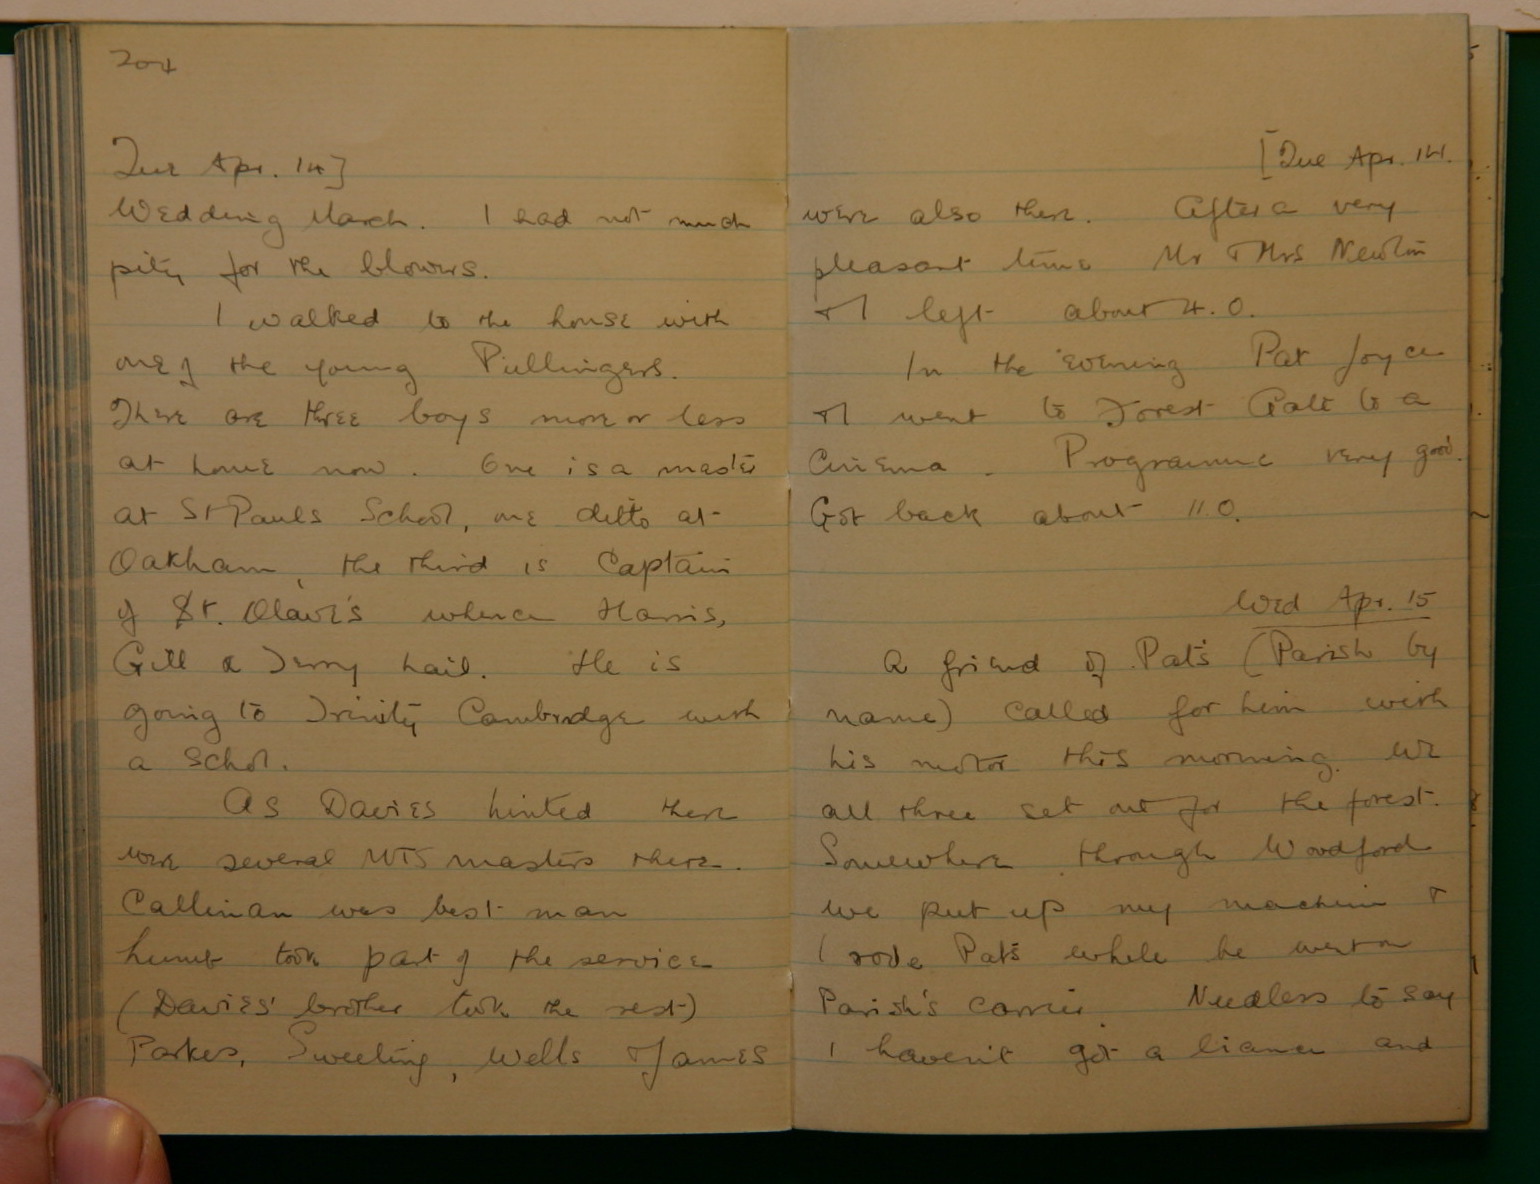 204
Tue Apr. 14]
Wedding March. I had not much
pity for the blowers.
I walked to the house with
one of the young Pullingers.
There are three boys more or less
at home now. One is a master
at St Pauls School, one ditto at
Oakham, the third is Captain
of St. Olave's whence Harris,
Gill & Jerry hail. He is
going to Trinity Cambridge with
a Schol.
As Davies hinted there
were several MTS masters there.
Callinan was best man
took part of the service
(Davies' brother took the rest)
Parkes, Sweeting, Wells & James
[Tue Apr. 14.
were also there. After a very
pleasant time Mr & Mrs Newton
& I left about 4.0.
In the evening Pat Joyce
& I went to Forest Gate to a
Cinema. Programme very good.
Got back about 11 0.
Wed Apr. 15
A friend of Pat's (Parish by
name) called for him with
his motor this morning. We
all three set out for the forest.
Somewhere through Woodford
we put up my machine &
I rode Pat's while he went on
Parish's carrier. Needless to say
I haven't got a licence and